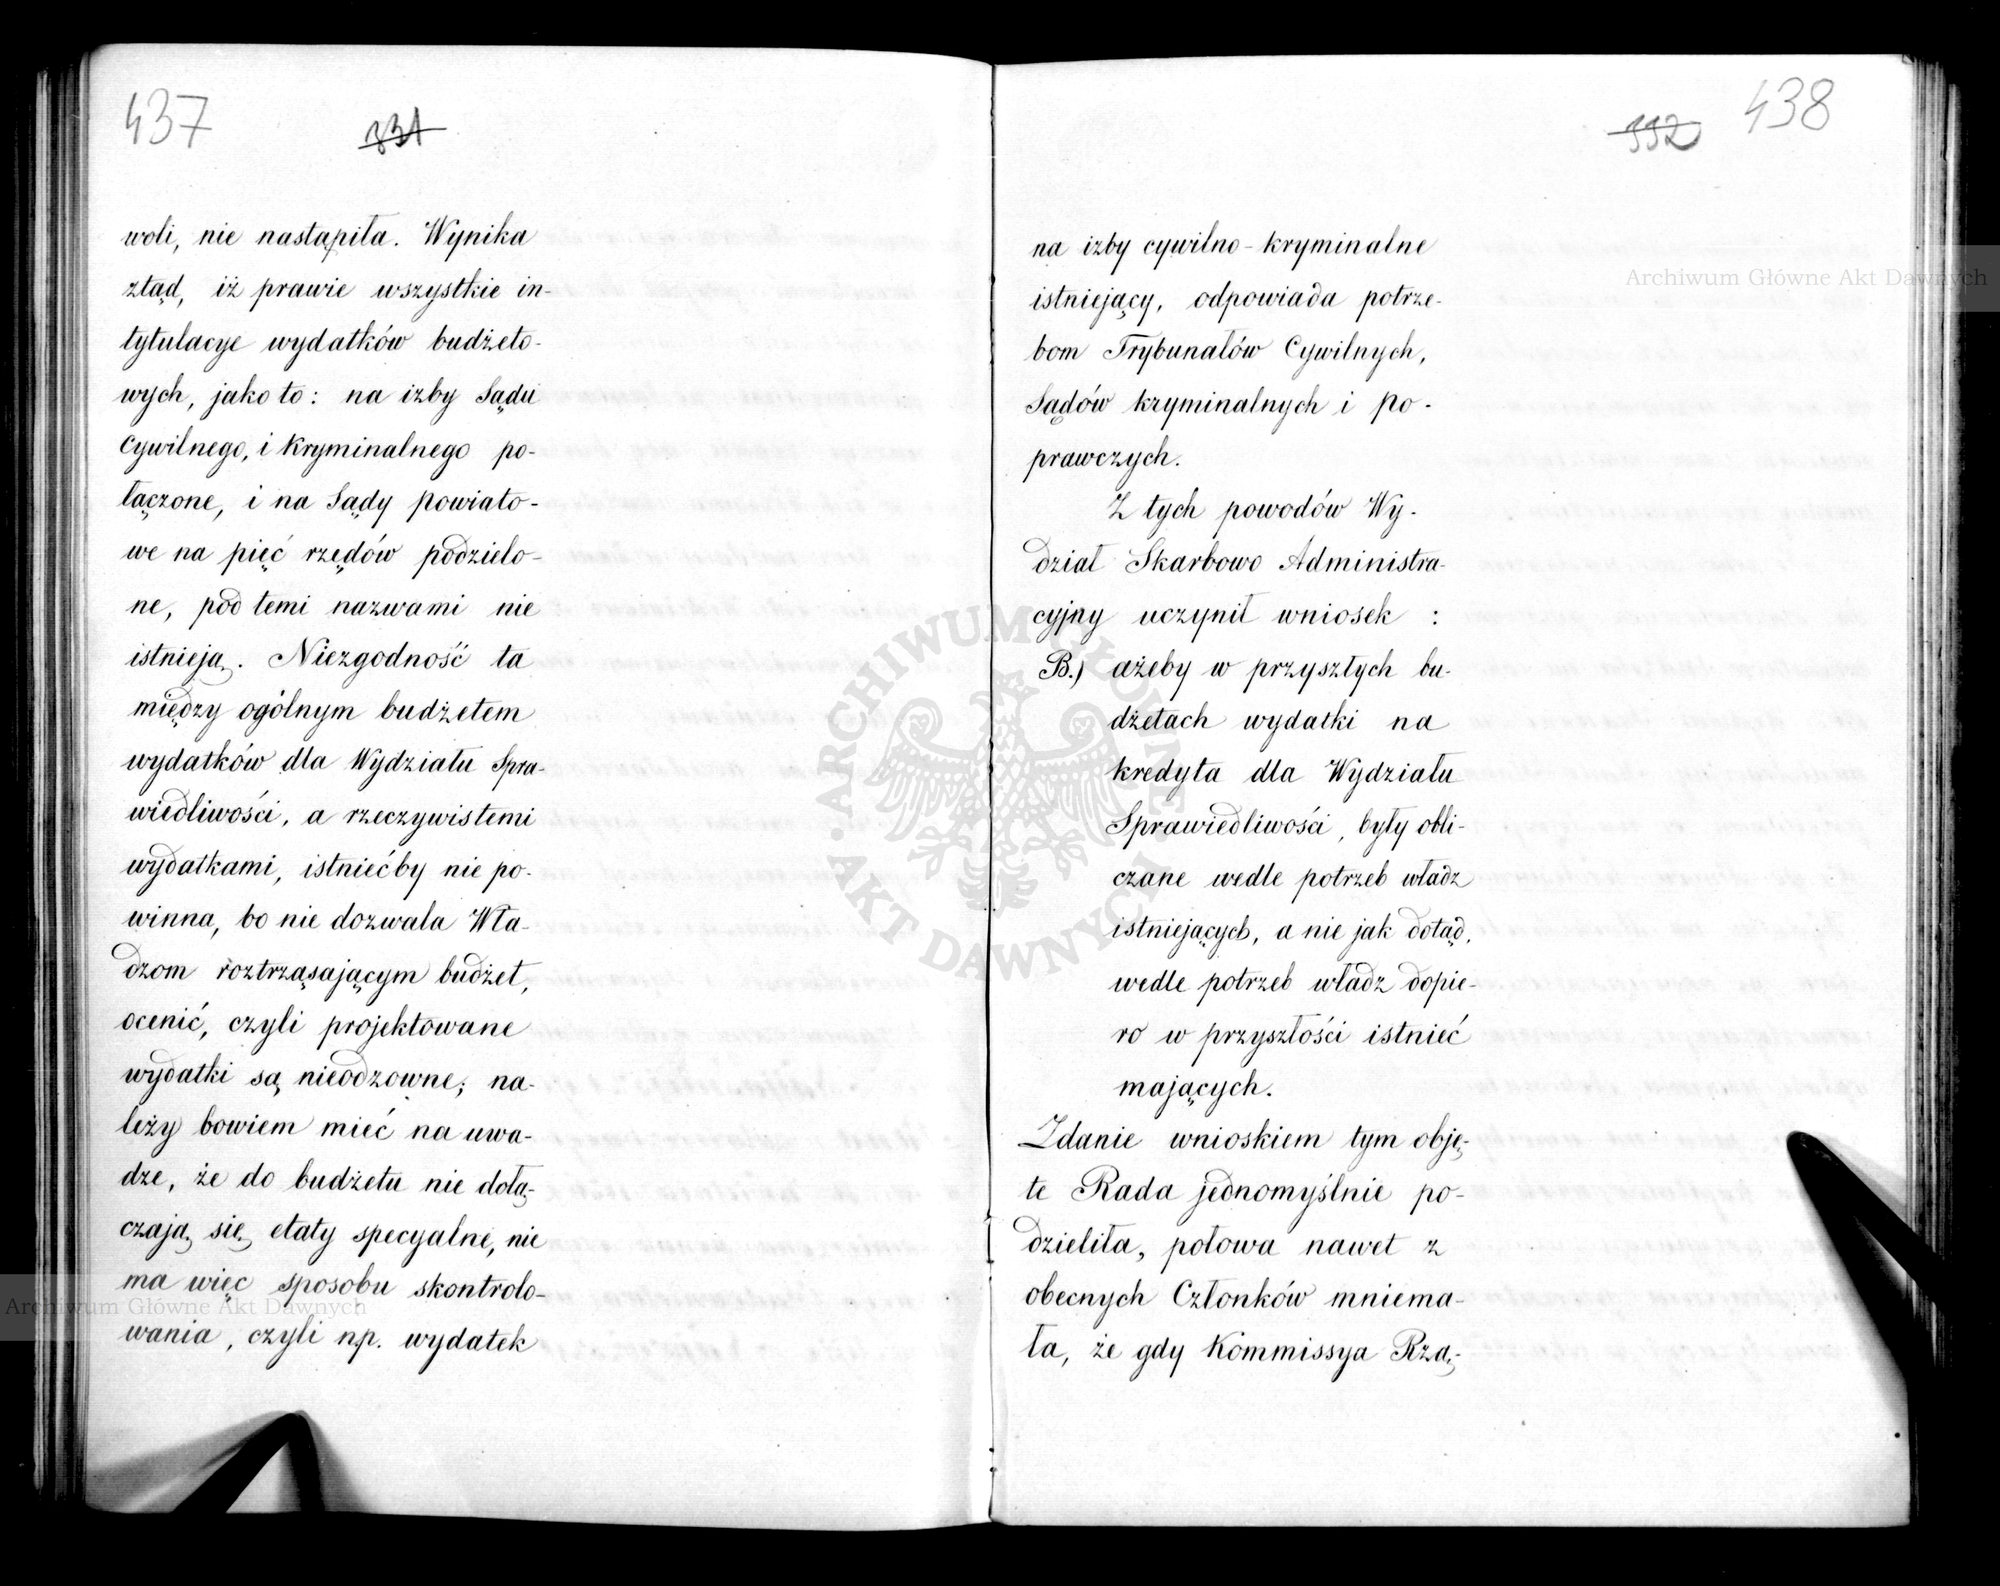 437
331
woli, nie nastąpiła. Wynika
ztąd, iż prawie wszystkie in-
tytulacye wydatków budżeto-
wych, jako to: na izby Sądu
Cywilnego, i Kryminalnego po-
łączone, i na Sądy powiato-
we na pięć rzędów podzielo-
ne, pod temi nazwami nie
istnieją. Niezgodność ta
między ogólnym budżetem
wydatków dla Wydziału Spra-
wiedliwości, a rzeczywistemi
wydatkami, istniećby nie po-
winna, bo nie dozwala Wła-
dzom roztrząsającym budżet,
ocenić, czyli projektowane
wydatki są nieodzowne; na-
leży bowiem mieć na uwa-
dze, że do budżetu nie dołą-
czają się etaty specyalne, nie
ma więc sposobu skontrolo-
wania, czyli np. wydatek
438
332
na izby cywilno-kryminalne
istniejący, odpowiada potrze-
bom Trybunałów Cywilnych,
Sądów kryminalnych i po-
prawczych.
Z tych powodów Wy-
dział Skarbowo Administra-
cyjny uczynił wniosek :
B.) ażeby w przyszłych bu-
dżetach wydatki na
kredyta dla Wydziału
Sprawiedliwości, były obli-
czane wedle potrzeb władz
istniejących, a nie jak dotąd,
wedle potrzeb władz dopie-
ro w przyszłości istnieć
mających.
Zdanie wnioskiem tym obję-
te Rada jednomyślnie po-
dzieliła, połowa nawet z
obecnych Członków mniema-
ła, że gdy Kommissya Rzą-
Archiwum Główne Akt Dawnych
Archiwum Główne Akt Dawnych
ARCHIWUM GŁÓWNE AKT DAWNYCH